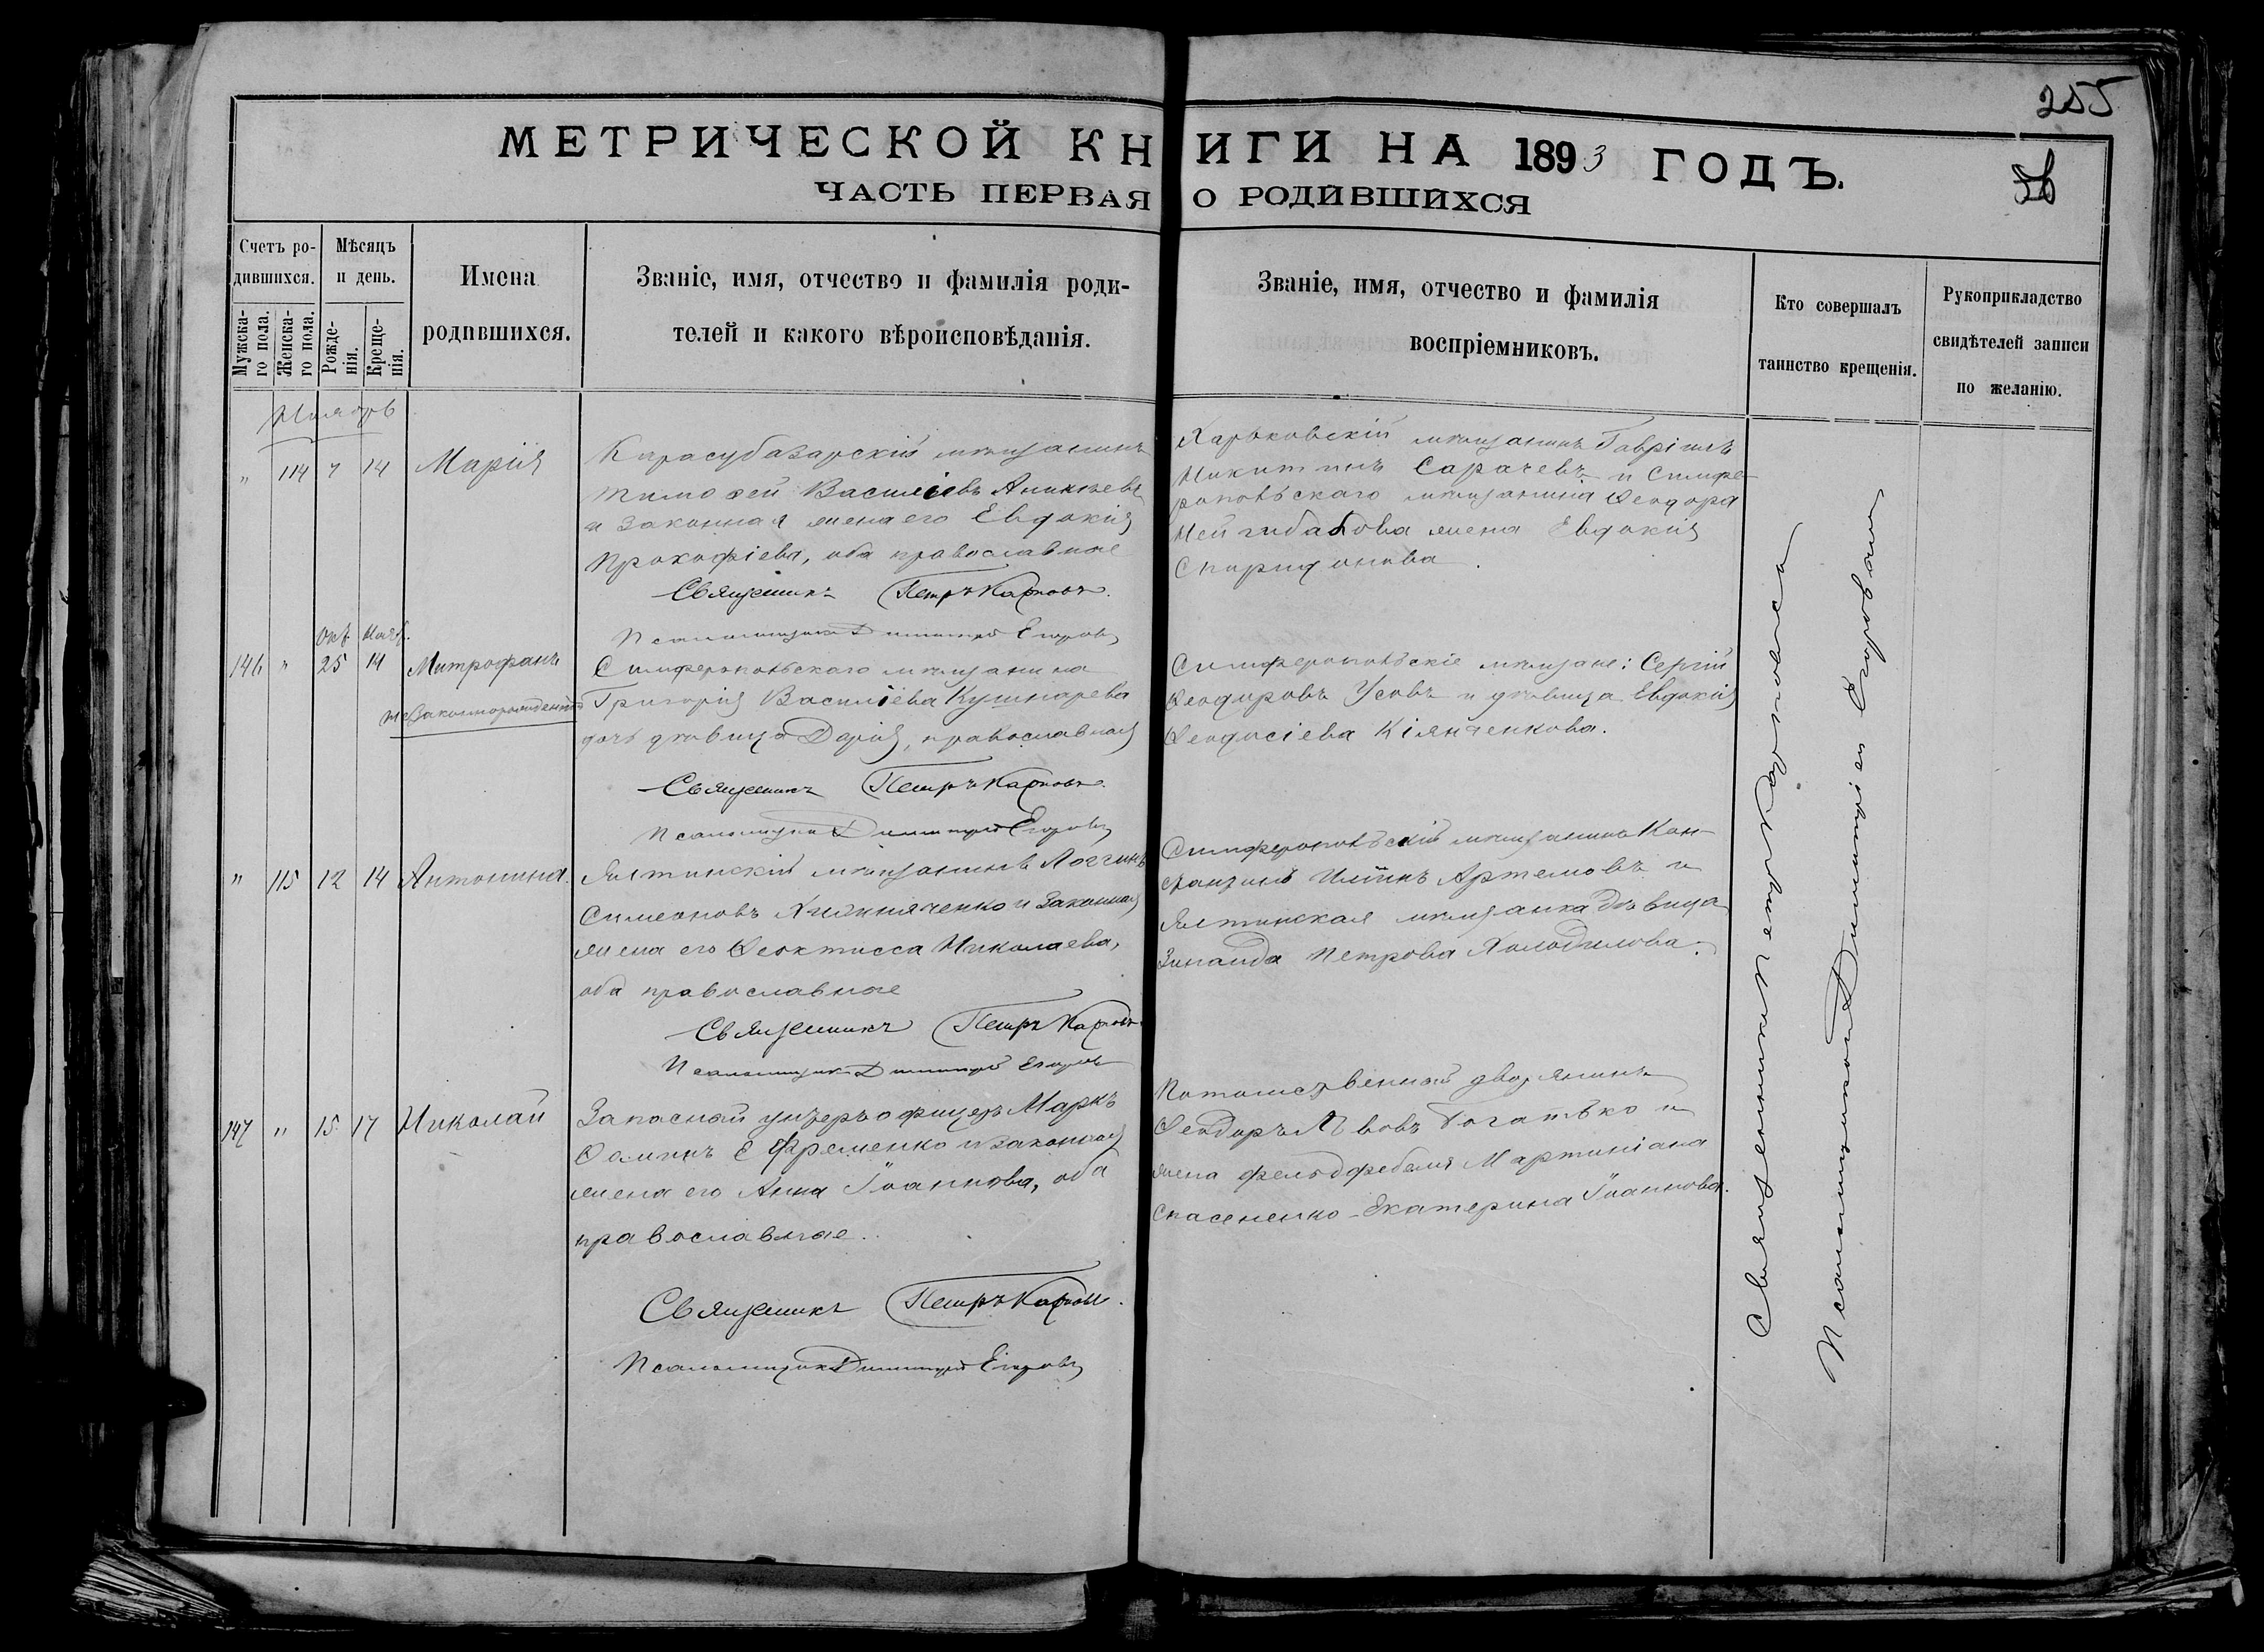 255
МЕТРИЧЕСКОЙ КНИГИ НА 1893 ГОДЪ.
ЧАСТЬ ПЕРВАЯ О РОДИВШИХСЯ
Счетъ ро-
дившихся.
Мужска-
го пола.
Женска-
го пола.
Мѣсяцъ
и день.
Рожде-
нія.
Креще-
нія.
Имена
родившихся.
Званіе, имя, отчество и фамилія роди-
телей и какого вѣроисповѣданія.
Званіе, имя, отчество и фамилія
воспріемниковъ.
Кто совершалъ
таинство крещенія.
Рукоприкладство
свидѣтелей записи
по желанію.
Ноябрь
" 114 7 14 Марія
Карасубазарскій мѣщанинъ
Тимофей Василіевъ Аникѣевъ
и законная жена его Евдокія
Прокофіева, оба православные
Священникъ Петръ Карповъ.
Псаломщикъ Димитрій Егоровъ
Харьковскій мѣщанинъ Гавріилъ
Никитинъ Сарачевъ и Симфе-
ропольскаго мѣщанина Ѳеодора
жена Евдокія
Спиридонова.
Окт. Нояб.
146 " 25 14 Митрофанъ
незаконнорожденный
Симферопольскаго мѣщанина
Григорія Василіева Кушнарева
дочь дѣвица Дарія, православная
Священникъ Петръ Карповъ.
Псаломщикъ Димитрій Егоровъ
Симферопольскіе мѣщане: Сергій
Ѳеодоровъ Усовъ и дѣвица Евдокія
Ѳеодосіева Кіянченкова.
" 115 12 14 Антонина.
Ялтинскій мѣщанинъ Логгинъ
Симеоновъ Хижняченко и законная
жена его Ѳеоктисса Николаева,
оба православные
Священникъ Петръ Карповъ
Псаломщикъ Димитрій Егоровъ
Симферопольскій мѣщанинъ Кон-
стантинъ Илiинъ Артемовъ и
Ялтинская мѣщанка дѣвица
Зинаида Петрова Холодилова.
147 " 15 17 Николай
Запасный унтеръ офицеръ Маркъ
Ѳоминъ Ефременко и законная
жена его Анна Іоаннова, оба
православные.
Священникъ Петръ Карповъ.
Псаломщикъ Димитрій Егоровъ
Потомственный дворянинъ
Ѳеодоръ Львовъ Богатько и
жена фельдфебеля Мартиніана
Спасененко - Екатерина Іоаннова.
Священникъ Петръ Карповъ съ
Псаломщикомъ Димитріемъ Егоровымъ